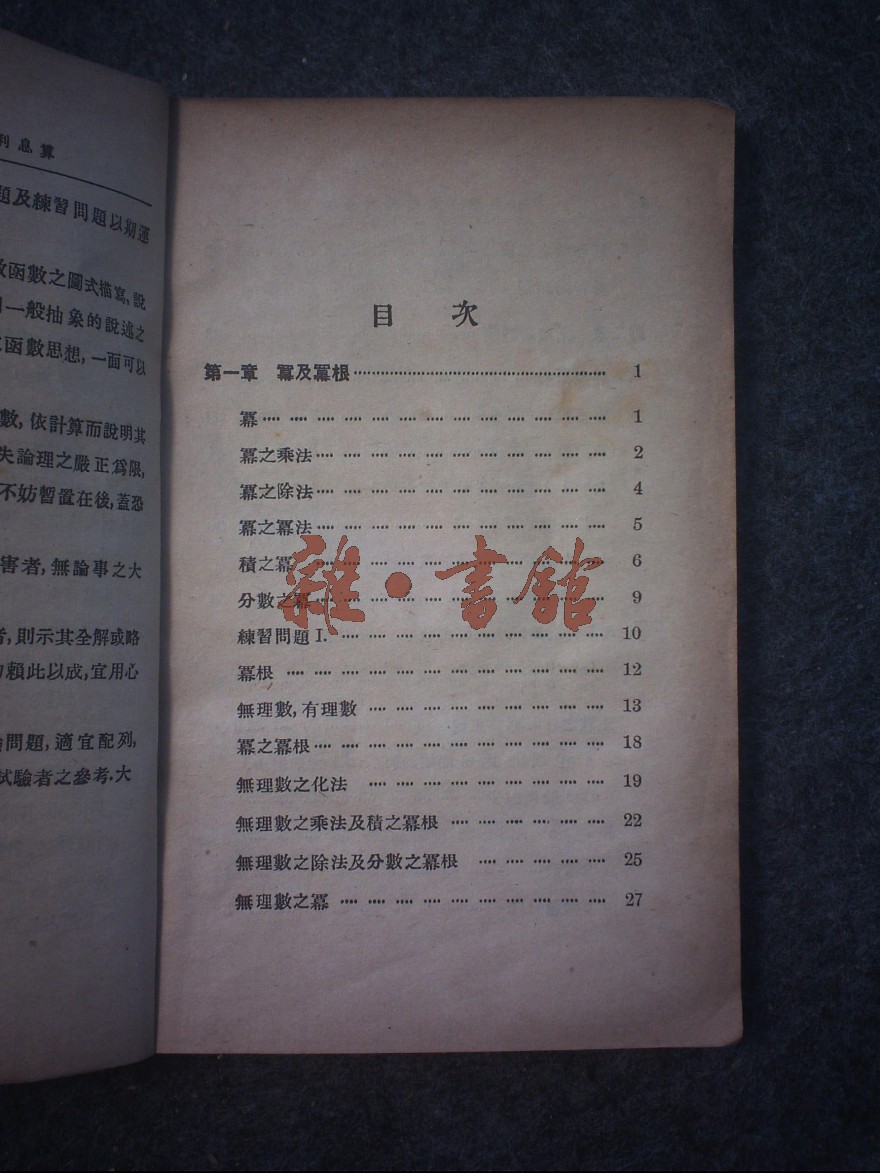 利息算
題及練習問題以期運
函數之圖式描寫,說
一般抽象的說述之
函數思想,一面可以
數,依計算而說明其
失論理之嚴正爲限,
不妨暫置在後,蓋恐
害者,無論事之大
者,則示其全解或略
賴此以成,宜用心
問題,適宜配列,
試驗者之參考.大
目 次
第一章 冪及冪根 1
冪 1
冪之乘法 2
冪之除法 4
冪之冪法 5
積之冪 6
分數之冪 9
練習問題 I. 10
冪根 12
無理數,有理數 13
冪之冪根 18
無理數之化法 19
無理數之乘法及積之冪根 22
無理數之除法及分數之冪根 25
無理數之冪 27
雜·書館